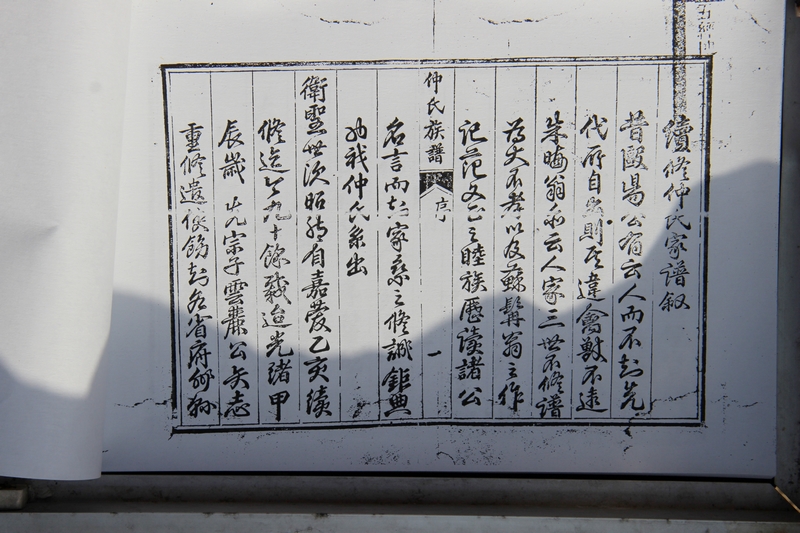 續修仲氏家譜叙
昔歐陽公有云人而不知先
代所自出則去違禽獸不遠
朱晦翁亦云人家三世不修譜
為大不孝以及蘇髯翁之作
記范文正之睦族歷讀諸公
仲氏族譜 序 一
名言而知家乘之修誠鉅典
也我仲氏系出
衛聖世次昭然自嘉慶乙亥續
修迄今九十餘載迨光緒甲
辰歲先宗子雲麓公矢志
重修遣使飭知各省府